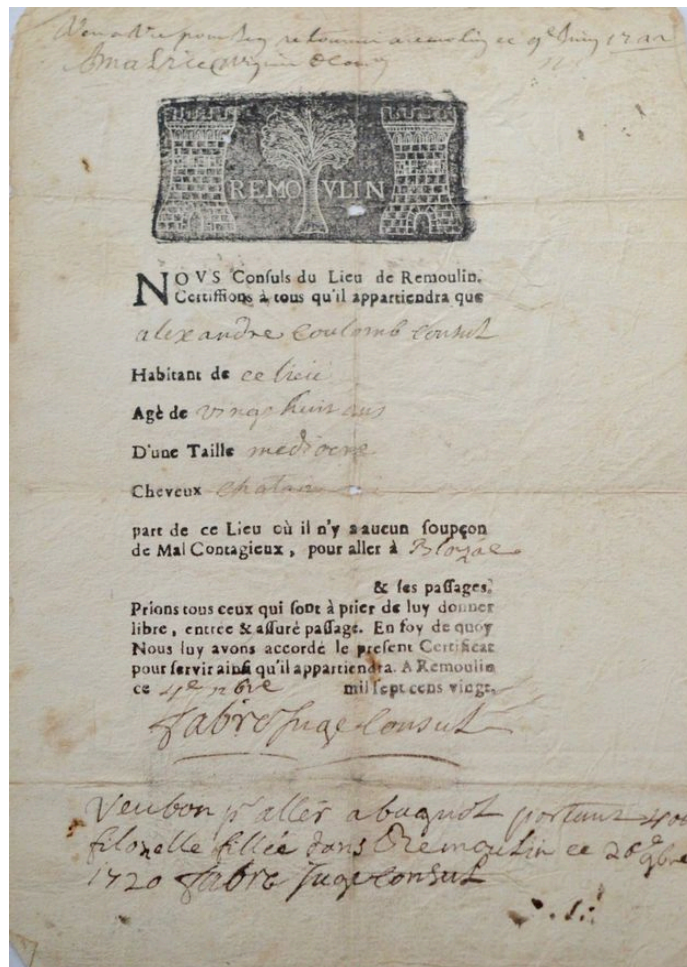 pour
REMOVLIN
NOVS Consuls du Lieu de Remoulin.
Certiffions à tous qu'il appartiendra que
alexandre coulomb consul
Habitant de ce lieu
Agè de vingt huit ans
D'une Taille mediocre
Cheveux chatan
part de ce Lieu où il n'y a aucun soupçon
de Mal Contagieux, pour aller à
& ses passages.
Prions tous ceux qui sont à prier de luy donner
libre, entrée & assuré passage. En foy de quoy
Nous luy avons accordé le present Certificat
pour servir ainsi qu'il appartiendra. A Remoulin
ce 4e nbre mil sept cens vingt.
fabre juge consul
Veu bon pr aller a portant 400
filozelle fillée dans Remoulin ce 28e 9bre
1720 fabre juge consul